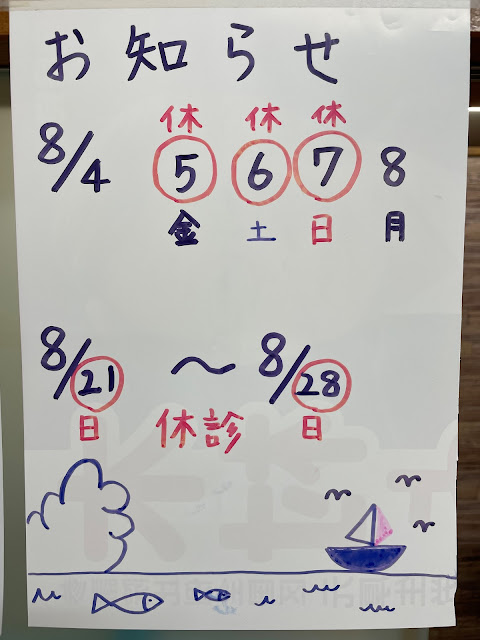 お知らせ
休 休 休
8/4 5 6 7 8
金 土 日 月
8/21 〜 8/28
日 休診 日